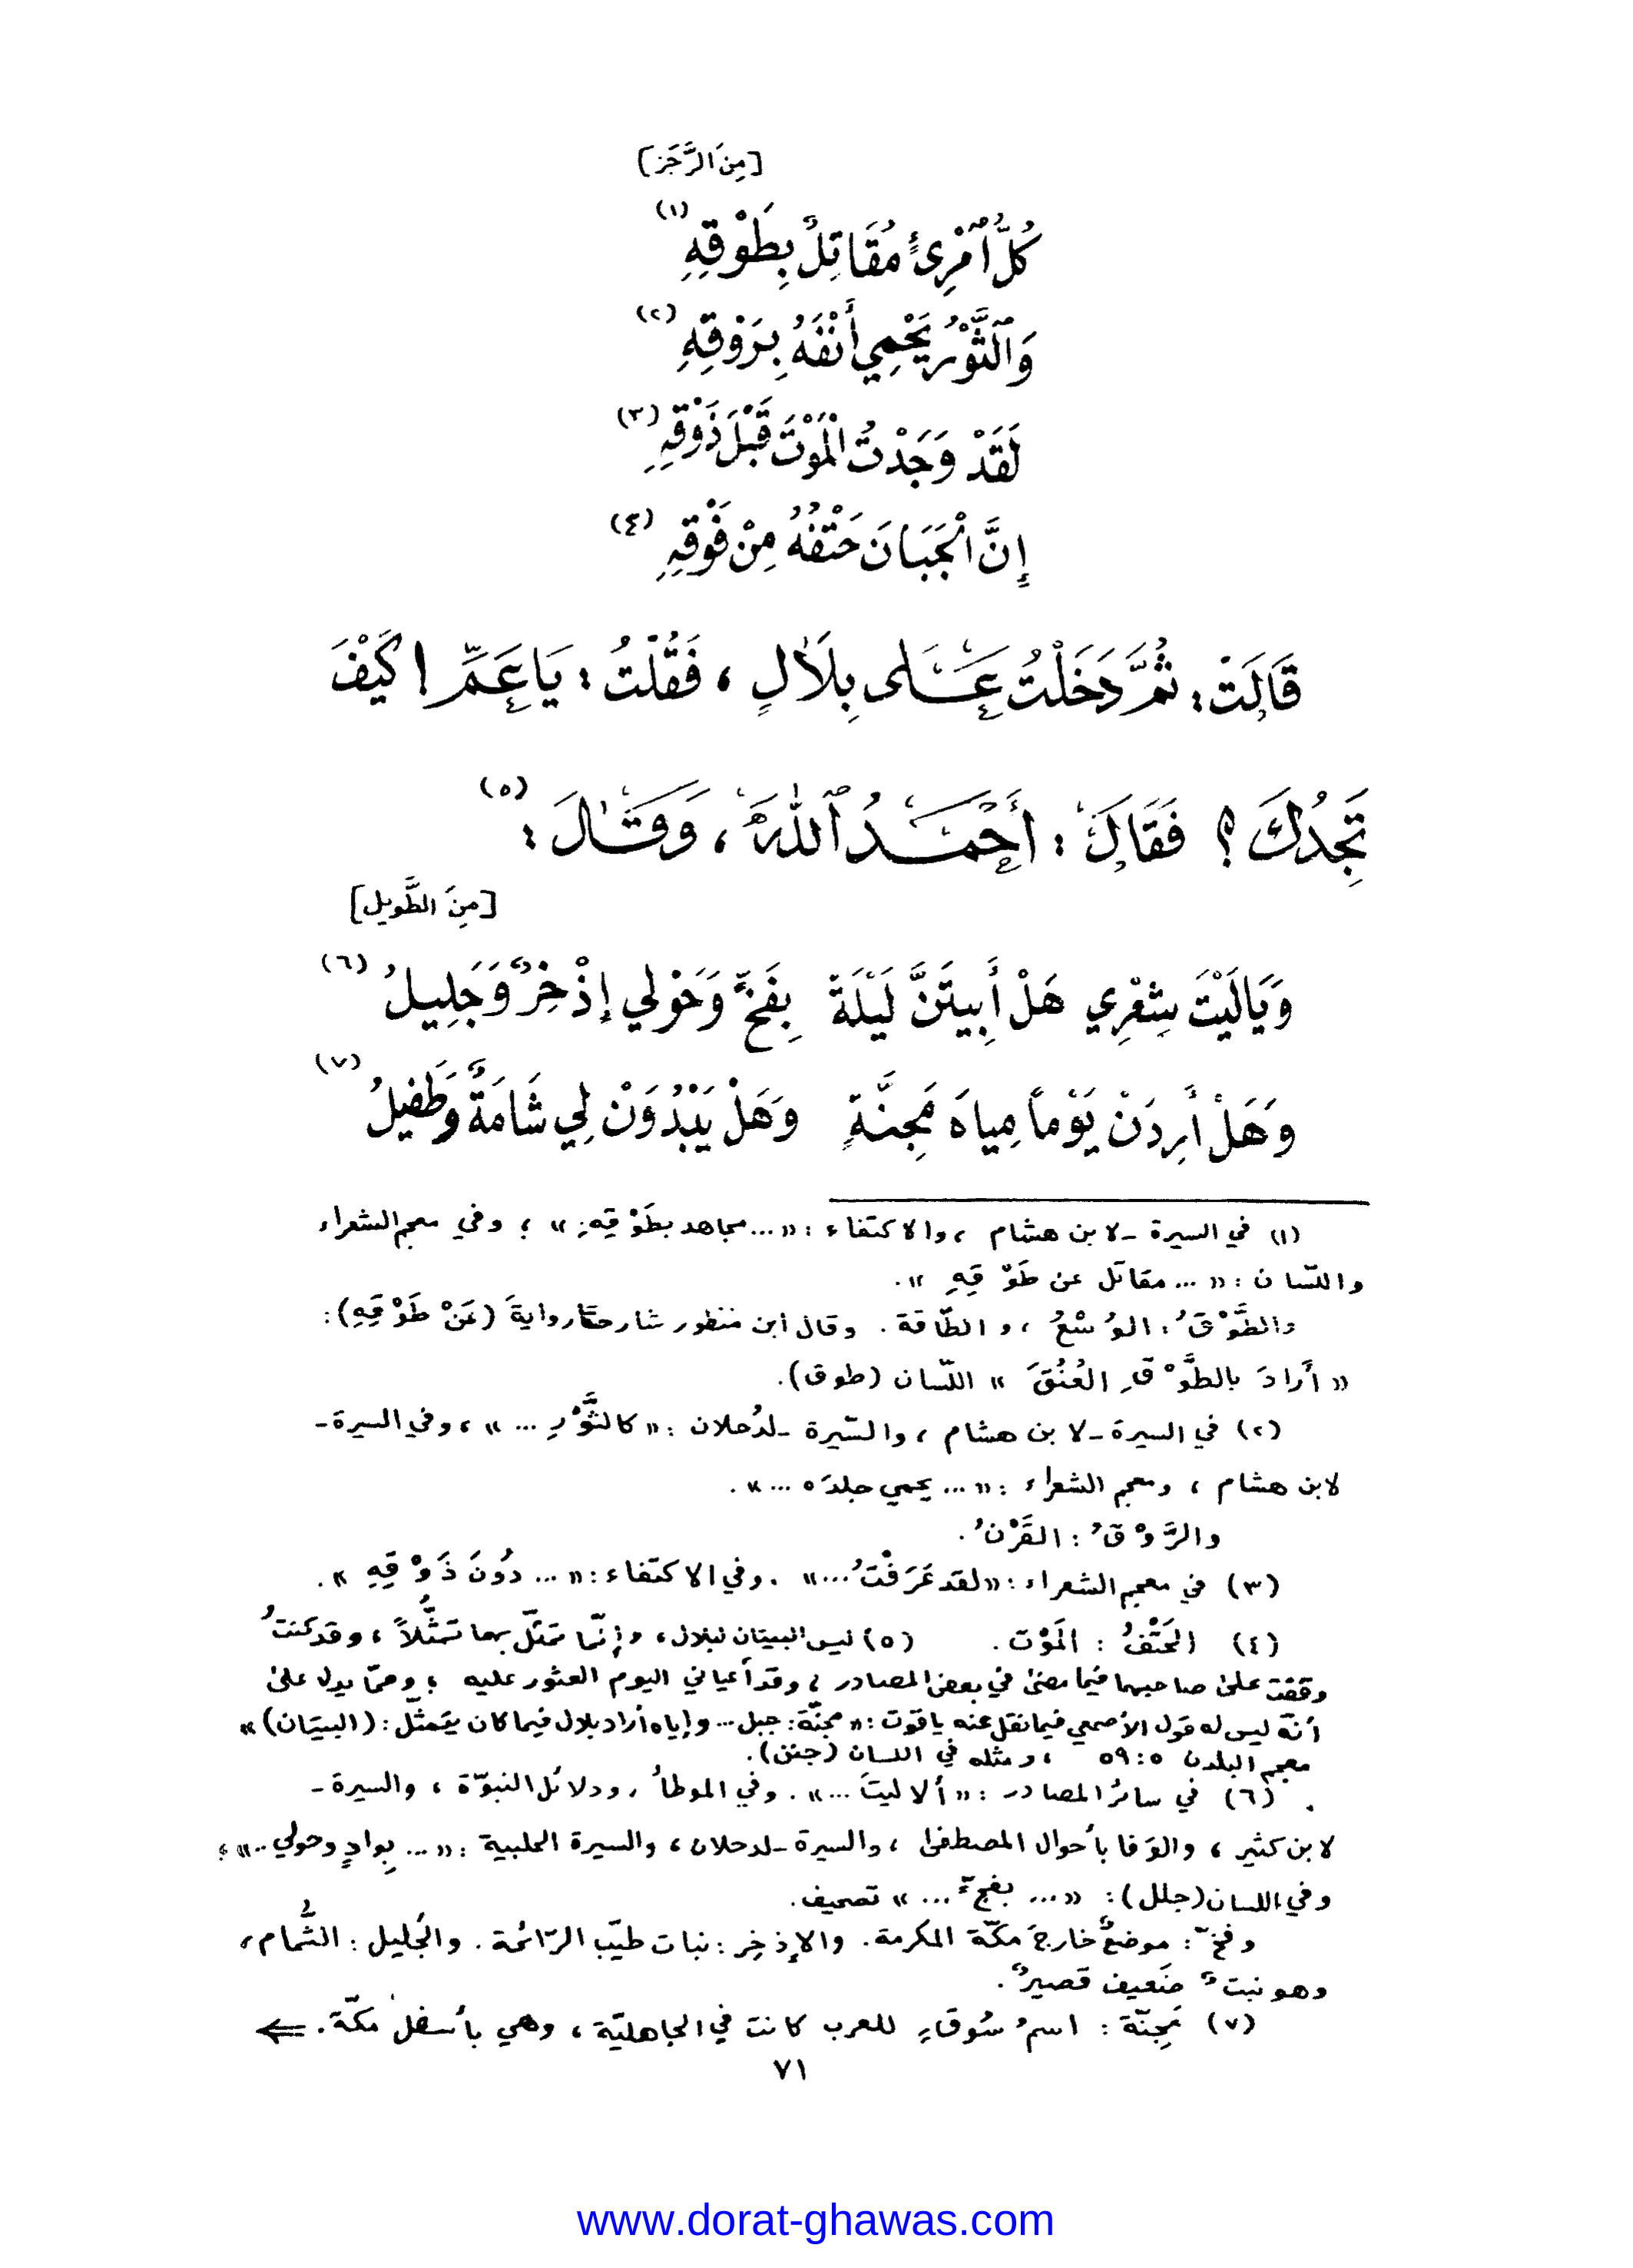 [مِنَ الرَّجَز]
كُلُّ ٱمْرِئٍ مُقَاتِلٌ بِطَوْقِهِ (١)
وَٱلثَّوْرُ يَحْمِي أَنْفَهُ بِرَوْقِهِ (٢)
لَقَدْ وَجَدْتُ الْمَوْتَ قَبْلَ ذَوْقِهِ (٣)
إِنَّ الْجَبَانَ حَتْفُهُ مِنْ فَوْقِهِ (٤)
قَالَتْ: ثُمَّ دَخَلْتُ عَلَى بِلَالٍ، فَقُلْتُ: يَا عَمِّ! كَيْفَ
تَجِدُكَ؟ فَقَالَ: أَحْمَدُ ٱللهَ، وَقَالَ: (٥)
[مِنَ الطَّويل]
وَيَا لَيْتَ شِعْرِي هَلْ أَبِيتَنَّ لَيْلَةً بِفَخٍّ وَحَوْلِي إِذْخِرٌ وَجَلِيلُ (٦)
وَهَلْ أَرِدَنْ يَوْماً مِياهَ مَجِنَّةٍ وَهَلْ يَبْدُوَنْ لِي شَامَةٌ وَطَفِيلُ (٧)
(١) في السيرة ـ لابن هشام، والاكتفاء: «... مجاهد بطَوْقِهِ»؛ وفي معجم الشعراء
واللسّان: «... مقاتل عن طَوْقِهِ».
والطَّوْقُ: الوُسْعُ، والطّاقة. وقال ابن منظور شارحاً رواية (عَنْ طَوْقِهِ):
«أَرادَ بالطَّوْقِ العُنُقَ» اللّسان (طوق).
(٢) في السيرة ـ لابن هشام، والسّيرة ـ لدُحلان: «كالثَّوْرِ ...»، وفي السيرة ـ
لابن هشام، ومعجم الشعراء: «... يحمي جلدَه ...».
والرَّوْقُ: القَرْنُ.
(٣) في معجم الشعراء: «لقد عَرَفْتُ...». وفي الاكتفاء: «... دُونَ ذَوْقِهِ».
(٤) الحَتْفُ: المَوْت. (٥) ليس البيتان لبلال، وإنّما تمثّل بهما تمثُّلاً، وقد كنتُ
وقفت على صاحبهما فيما مضىٰ في بعض المصادر، وقد أعياني اليوم العثور عليه؛ وممّا يدل علىٰ
أنّه ليس له قول الأصمعي فيما نقل عنه ياقوت: «مجنّة: جبل... وإياه أراد بلال فيما كان يتمثّل: (البيتان)»
معجم البلدن ٥: ٥٩، ومثله في اللسان (جنن).
(٦) في سائر المصادر: «ألا ليتَ ...». وفي الموطأ، ودلائل النبوّة، والسيرة ـ
لابن كثير، والوَفا بأحوال المصطفىٰ، والسيرة ـ لدحلان، والسيرة الحلبية: «... بِوادٍ وحولي ..»؛
وفي اللسان (جلل): «... بفجٍّ ...» تصحيف.
وفخّ: موضعٌ خارجَ مكّة المكرمة. والإِذخِر: نبات طيّب الرّائحة. والجَليل: الثُّمام،
وهو نبتٌ ضَعيف قصيرٌ.
(٧) مَجِنّة: اسمُ سُوقٍ للعرب كانت في الجاهليّة، وهي بأسفل مكّة. ⇐
٧١
www.dorat-ghawas.com